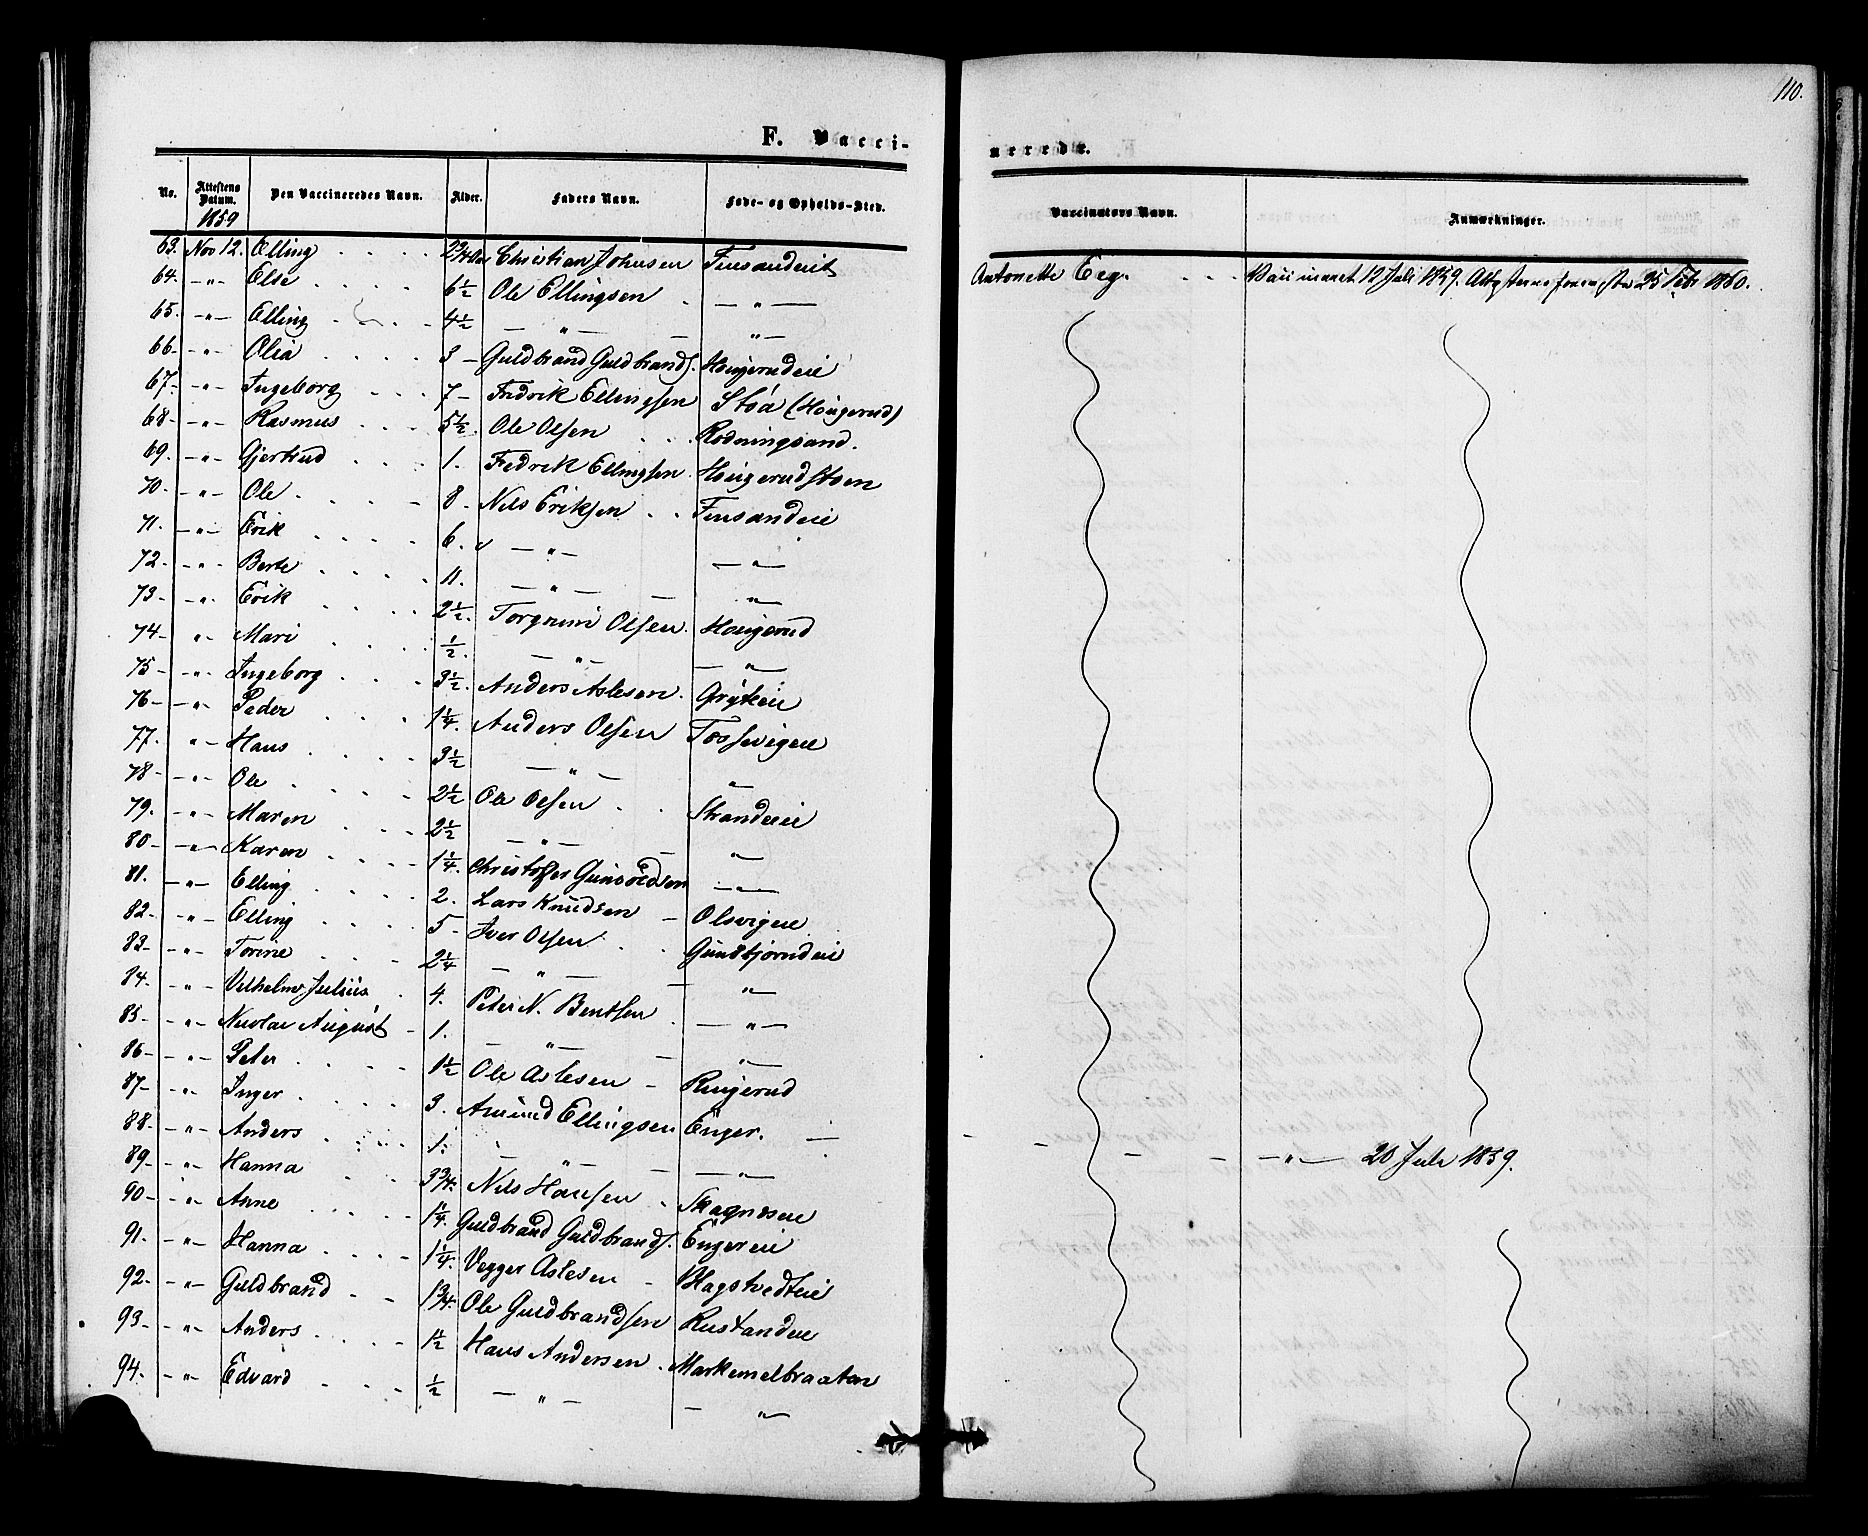 110.
F. Vacci-
nerede.
No. Attestens Datum. Den Vaccineredes Navn. Alder. Faders Navn. Føde- og Opholds-Sted. Vaccinators Navn. Anmærkninger.
1859
63. Nov 12. Elling . . . . 2 3/4 Christian Johnsen Antonette Eeg. . . . 12 Juli 1859. 25 Febr 1860.
64. -"- Else . . . . 6 1/2 Ole Ellingsen . -"-
65. -"- Elling . . . 4 1/2 -"- -"-
66- -"- Olia . . . . 3 - Guldbrand Guldbrands. Hougerudeie
67- -"- Ingeborg . . . 7- Fredrik Ellingsen Stöa (Hougerud)
68- -"- Rasmus . . . 5 1/2. Ole Olsen . . . Rödningsand.
69. -"- Gjertrud . . . . 1. Fredrik Ellingsen Hougerudstöen
70. -"- Ole . . . . 8. Nils Eriksen . . Finsandeie
71. -"- Erik . . . . 6. -"- -"-
72- -"- Berte . . . . 11. -"- -"-
73- -"- Erik . . . . 2 1/2. Torgrim Olsen. Hougerud
74- " - Mari . . . . 1/2. -"- -"-
75- -"- Ingeborg . . . 3 1/2. Anders Aslesen. Gryteeie
76- -"- Peder . . . 1 1/4. Anders Olsen Tossevigeie
77. "- Hans . . . . 3 1/2 -"- "
78- -"- Ole . . . . 2 1/2 Ole Olsen . . Strandeie
79. -"- Maren . . . 2 1/2 -"- "
80- -"- Karen . . . . 1 1/4. Christoffer Gunvoldsen -"-
81. -"- Elling . . . . 2. Lars Knudsen - Olsvigeie
82- -"- Elling . . . . 5- Iver Olsen . . Gundbjörudeie
83- -"- Torine . . . 2 1/4 -"- -"-
84. -"- Vilhelm Julius . 4. Peter N. Bentsen . -"-
85- -"- Nicolai August - 1. -"- "
86- -"- Peter . . . . 1 1/2 Ole Aslesen - Ringerud
87- -"- Inger . . . . 3. Amund Ellingsen Enger. -
88- -"- Anders . . . . 1. -"- -"- - - - - -"- 20 Juli 1859.
89- -"- Hanna 3 3/4. Nils Hansen . Skagnæseie
90- "- Anne . . . . 1 1/4. Guldbrand Guldbrands. Engereie
91. -"- Hanna . . . . 1 1/4. Vegger Aslesen - Hagstvedteie
92- -"- Guldbrand - - 1 3/4. Ole Guldbrandsen Rustandeie
93- -"- Anders . . . . 1 1/2 Hans Andersen . Markemelbraaten
94. -"- Edvard . . . . 1/2 -"- -"-